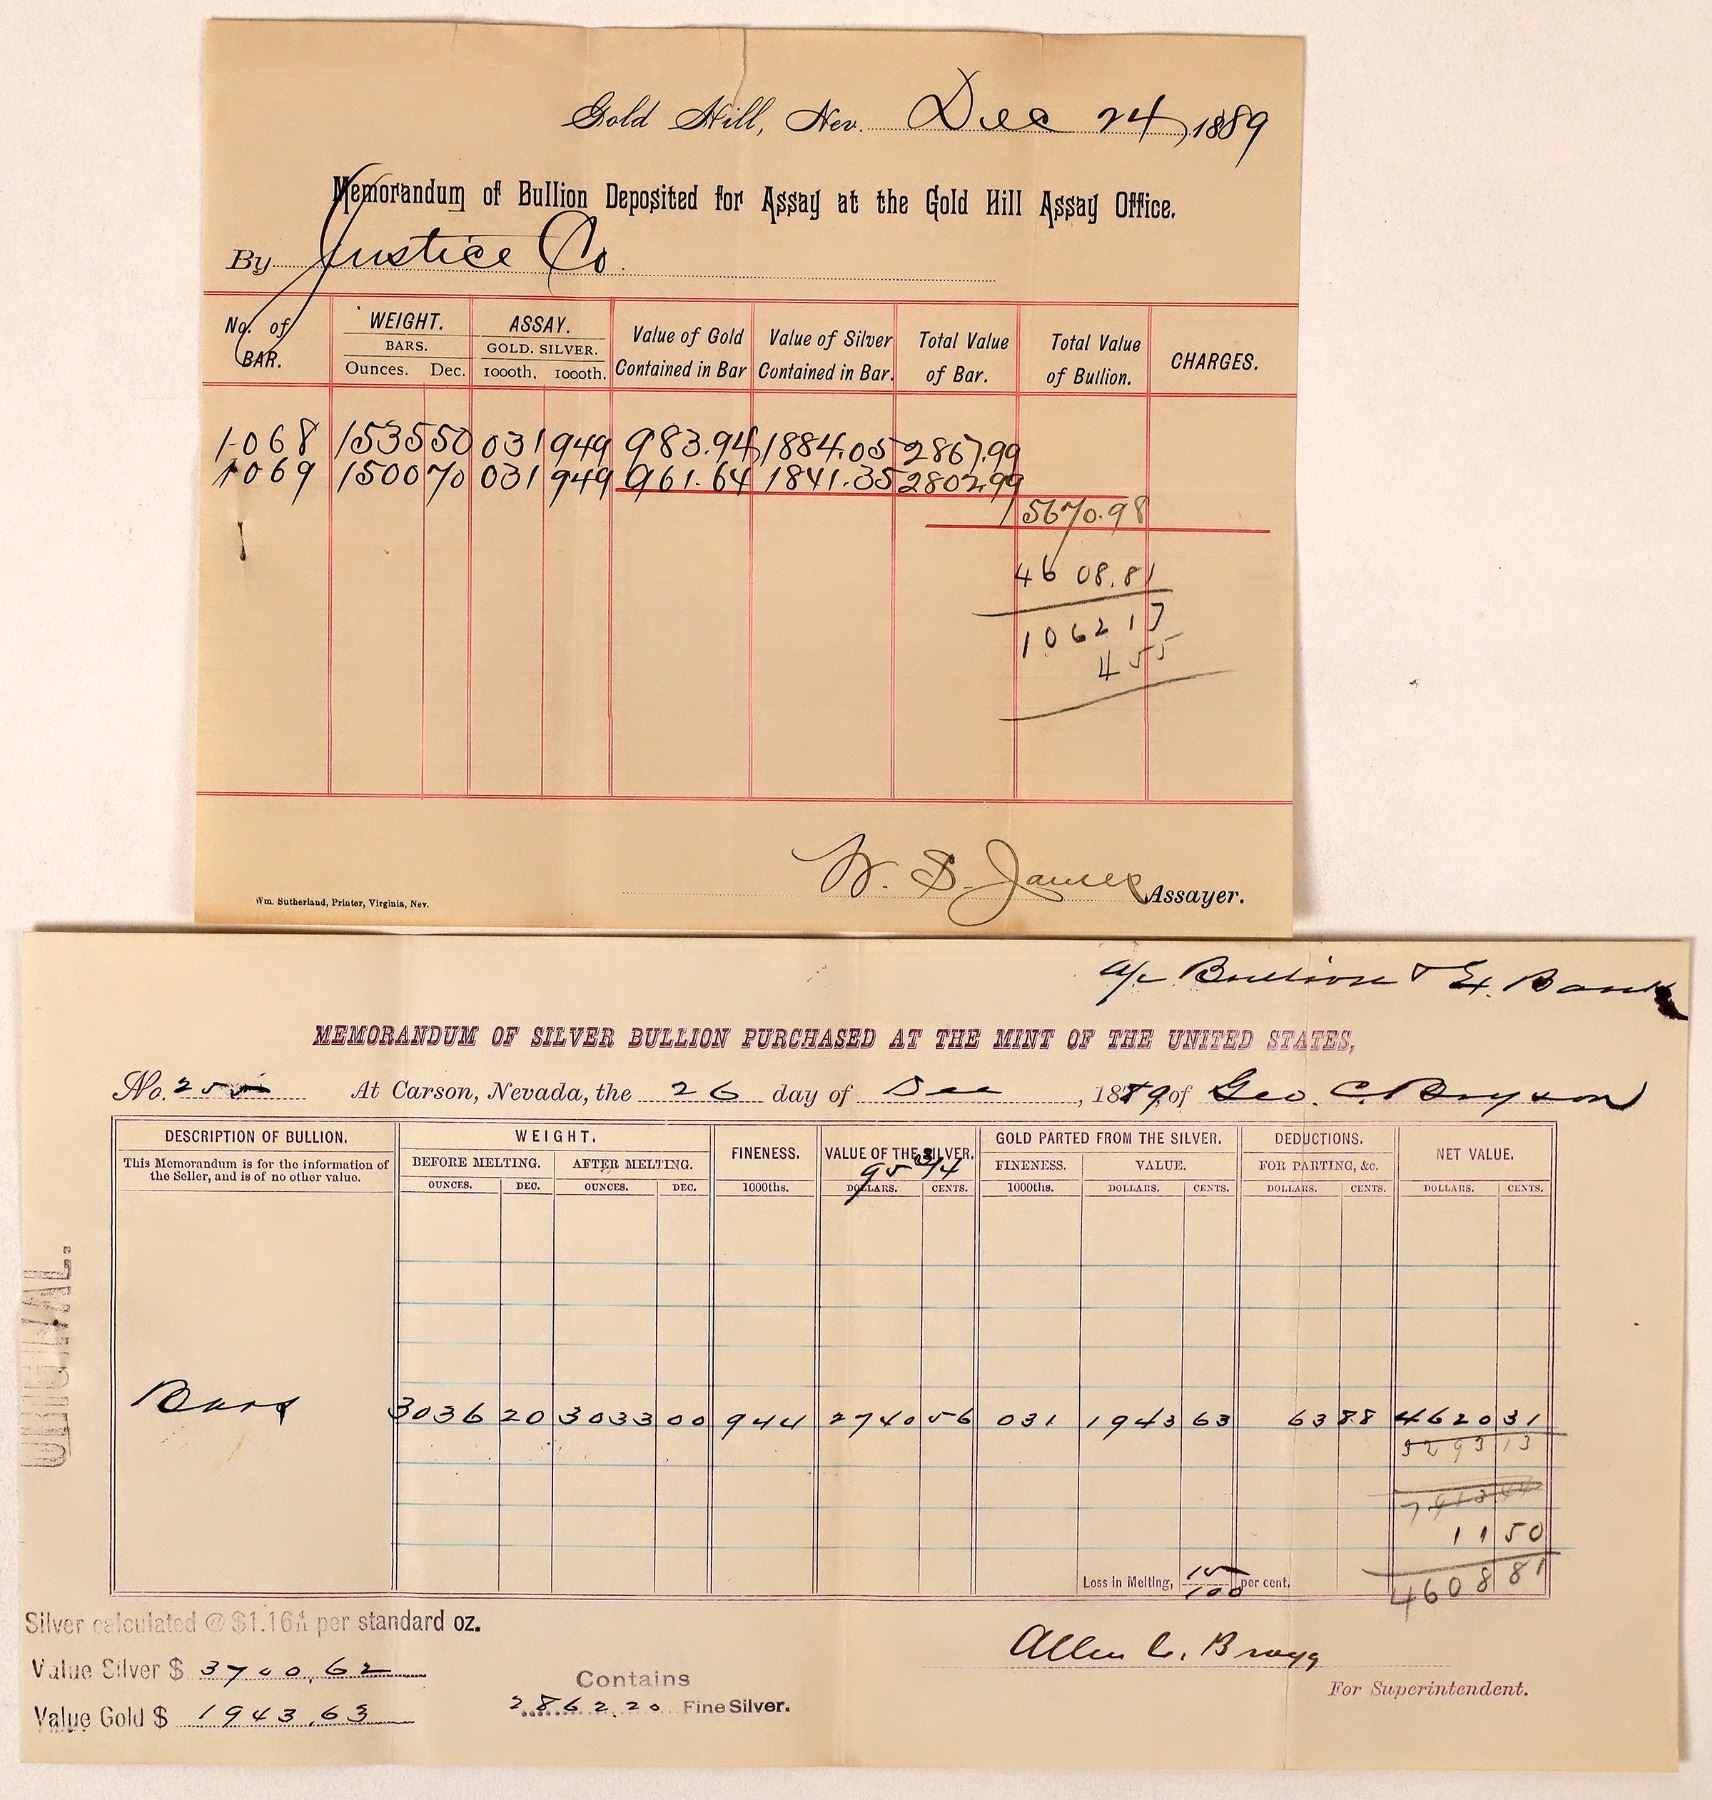 Gold Hill, Nev. Dec 24, 1889
Memorandum of Bullion Deposited for Assay at the Gold Hill Assay Office.
By Justice Co.
No. of BAR. WEIGHT. BARS. Ounces. Dec. ASSAY. GOLD. SILVER. 1000th. 1000th. Value of Gold Contained in Bar Value of Silver Contained in Bar. Total Value of Bar. Total Value of Bullion. CHARGES.
1068 1535 50 031 949 983.94 1884.05 2867.99
1069 1500 70 031 949 961.64 1841.35 2802.99
5670.98
4608.81
106217
455
W. S. James Assayer.
Wm. Sutherland, Printer, Virginia, Nev.
a/c Bullion & Ex. Bank
MEMORANDUM OF SILVER BULLION PURCHASED AT THE MINT OF THE UNITED STATES,
No. 25 At Carson, Nevada, the 26 day of Dec, 1889, of Geo. C. Bryson
DESCRIPTION OF BULLION. WEIGHT. FINENESS. VALUE OF THE SILVER. GOLD PARTED FROM THE SILVER. DEDUCTIONS. NET VALUE.
This Memorandum is for the information of the Seller, and is of no other value. BEFORE MELTING. AFTER MELTING. 95 3/4 FINENESS. VALUE. FOR PARTING, &c.
OUNCES. DEC. OUNCES. DEC. 1000ths. DOLLARS. CENTS. 1000ths. DOLLARS. CENTS. DOLLARS. CENTS. DOLLARS. CENTS.
ORIGINAL.
Bars 3036 20 3033 00 944 2740 56 031 1943 63 63 88 4620 31
3293 13
11 50
Loss in Melting, 15/100 per cent.
4608 81
Silver calculated @ $1.16 4 per standard oz.
Allen C. Bragg
For Superintendent.
Value Silver $ 3700.62
Contains
2862.20 Fine Silver.
Value Gold $ 1943.63